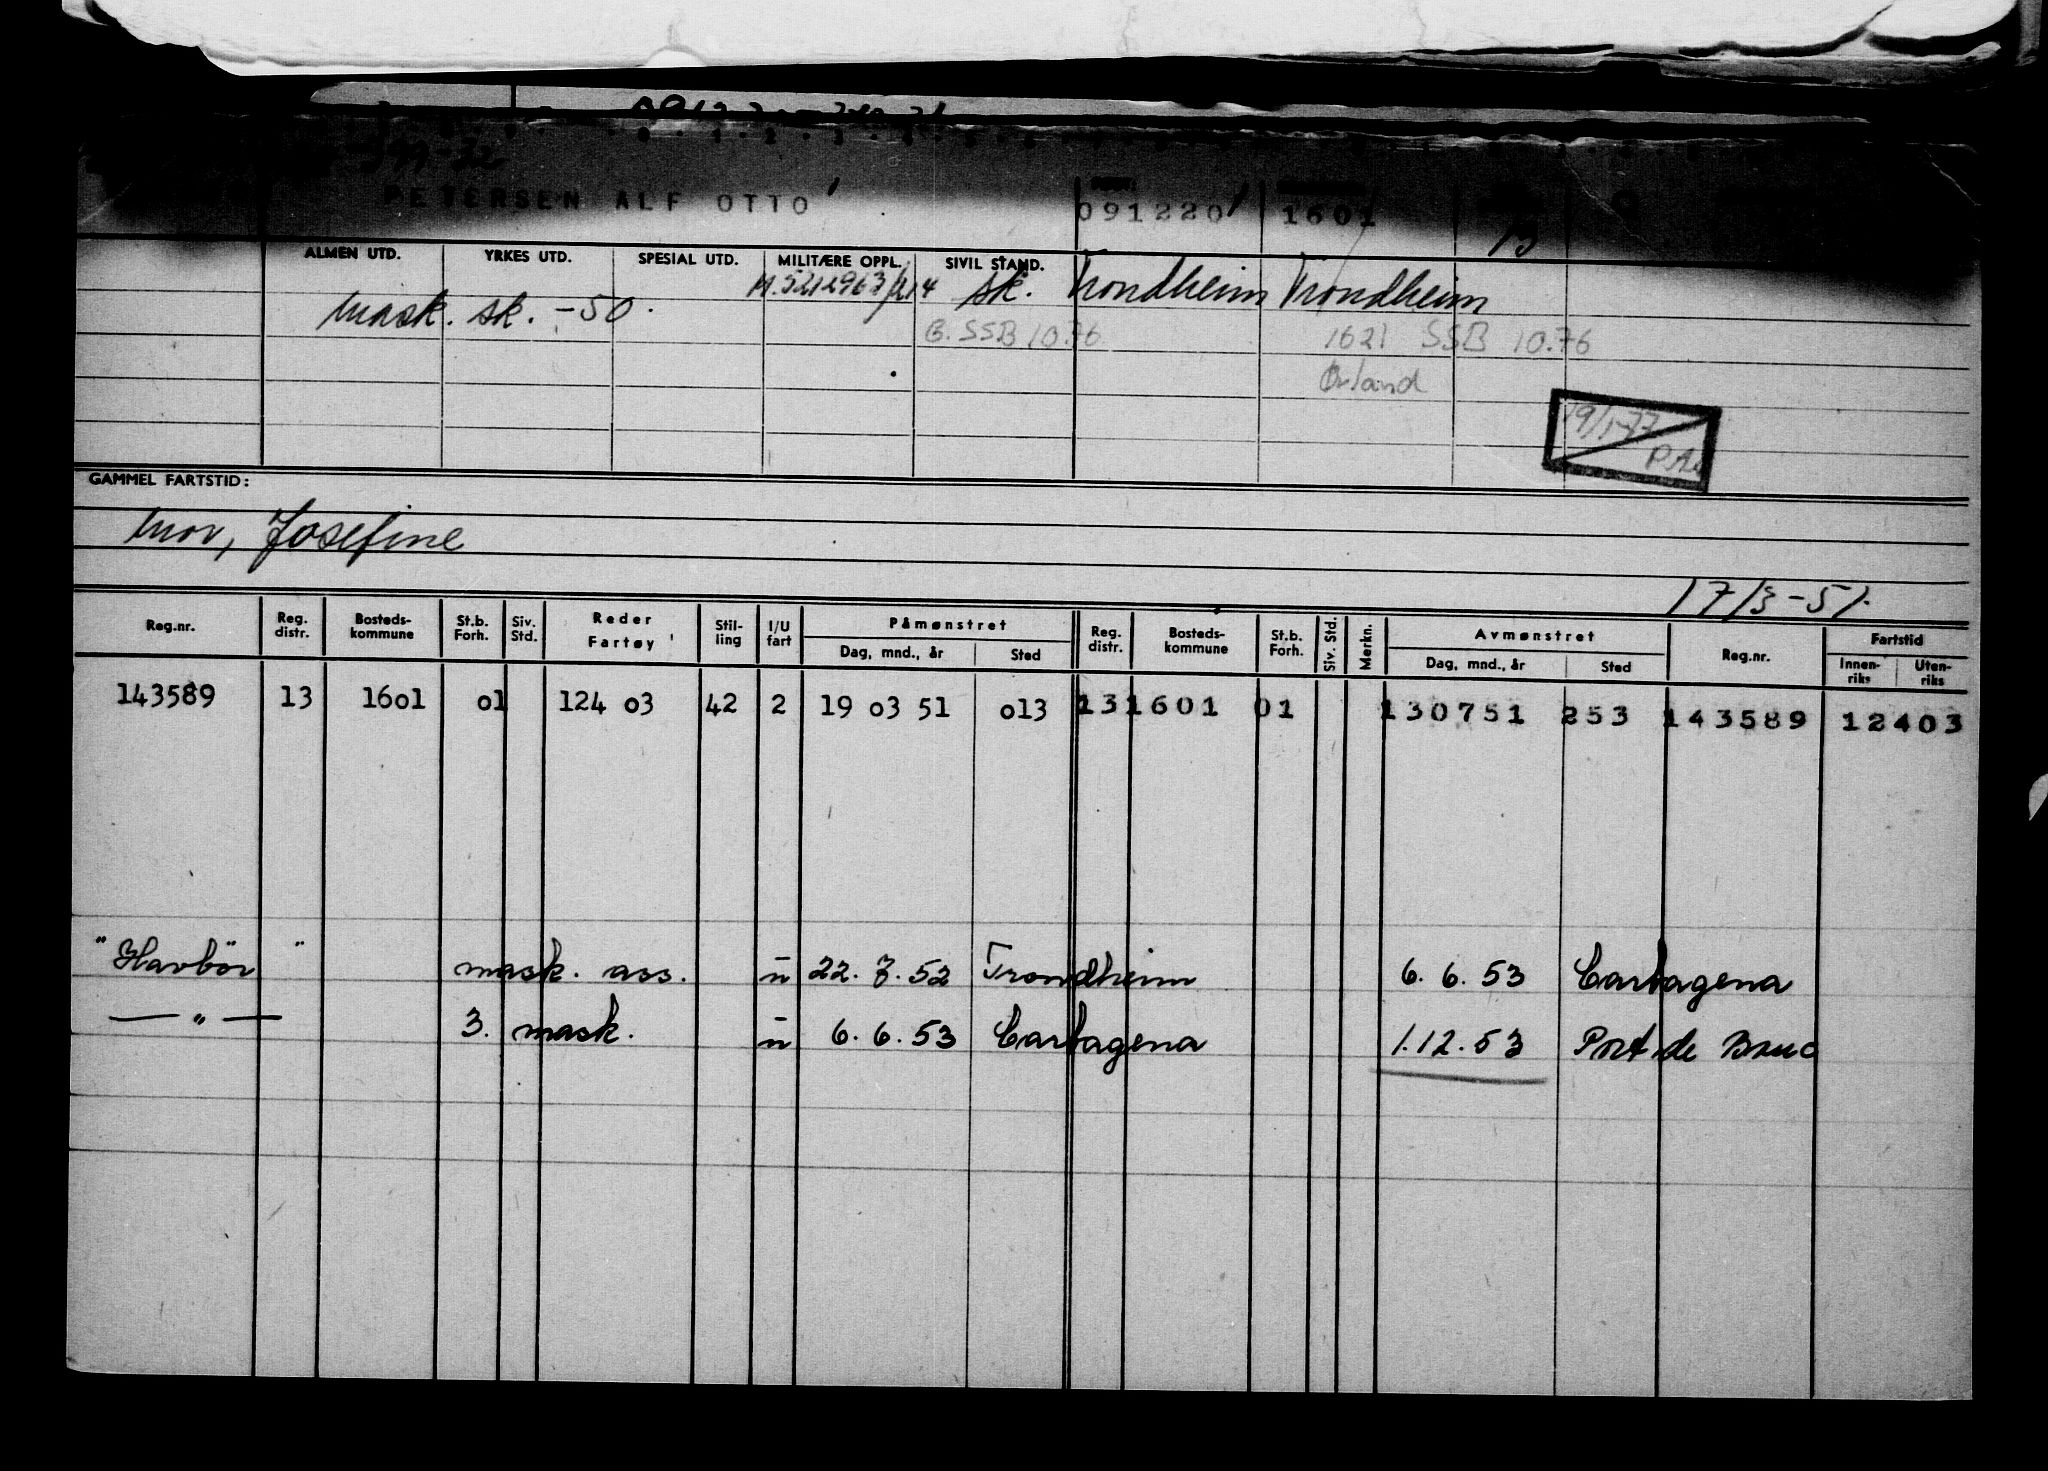 -32
PETERSEN ALF OTTO 091220 1601 13
ALMEN UTD. YRKES UTD. SPESIAL UTD. MILITÆRE OPPL. SIVIL STAND.
mask. sk. -50. sk. Trondheim Trondheim
G. SSB 10.76 1621 SSB 10.76
Ørland
19/1-77
GAMMEL FARTSTID:
mor, Josefine
17/3-51.
Reg.nr. Reg. distr. Bosteds-kommune St.b. Forh. Siv. Std. Reder Fartøy Stil-ling I/U fart Påmønstret Reg. distr. Bosteds-kommune St.b. Forh. Siv. Std. Merkn. Avmønstret Reg.nr. Fartstid
Dag, mnd., år Sted Dag, mnd., år Sted Innen-riks Uten-riks
143589 13 1601 01 124 03 42 2 19 03 51 013 13 1601 01 130751 253 143589 12403
"Havbör" mask. ass. u 22. 7. 52 Trondheim 6. 6. 53 Cartagena
— " — 3. mask. u 6. 6. 53 Cartagena 1.12.53 Port de Bouc